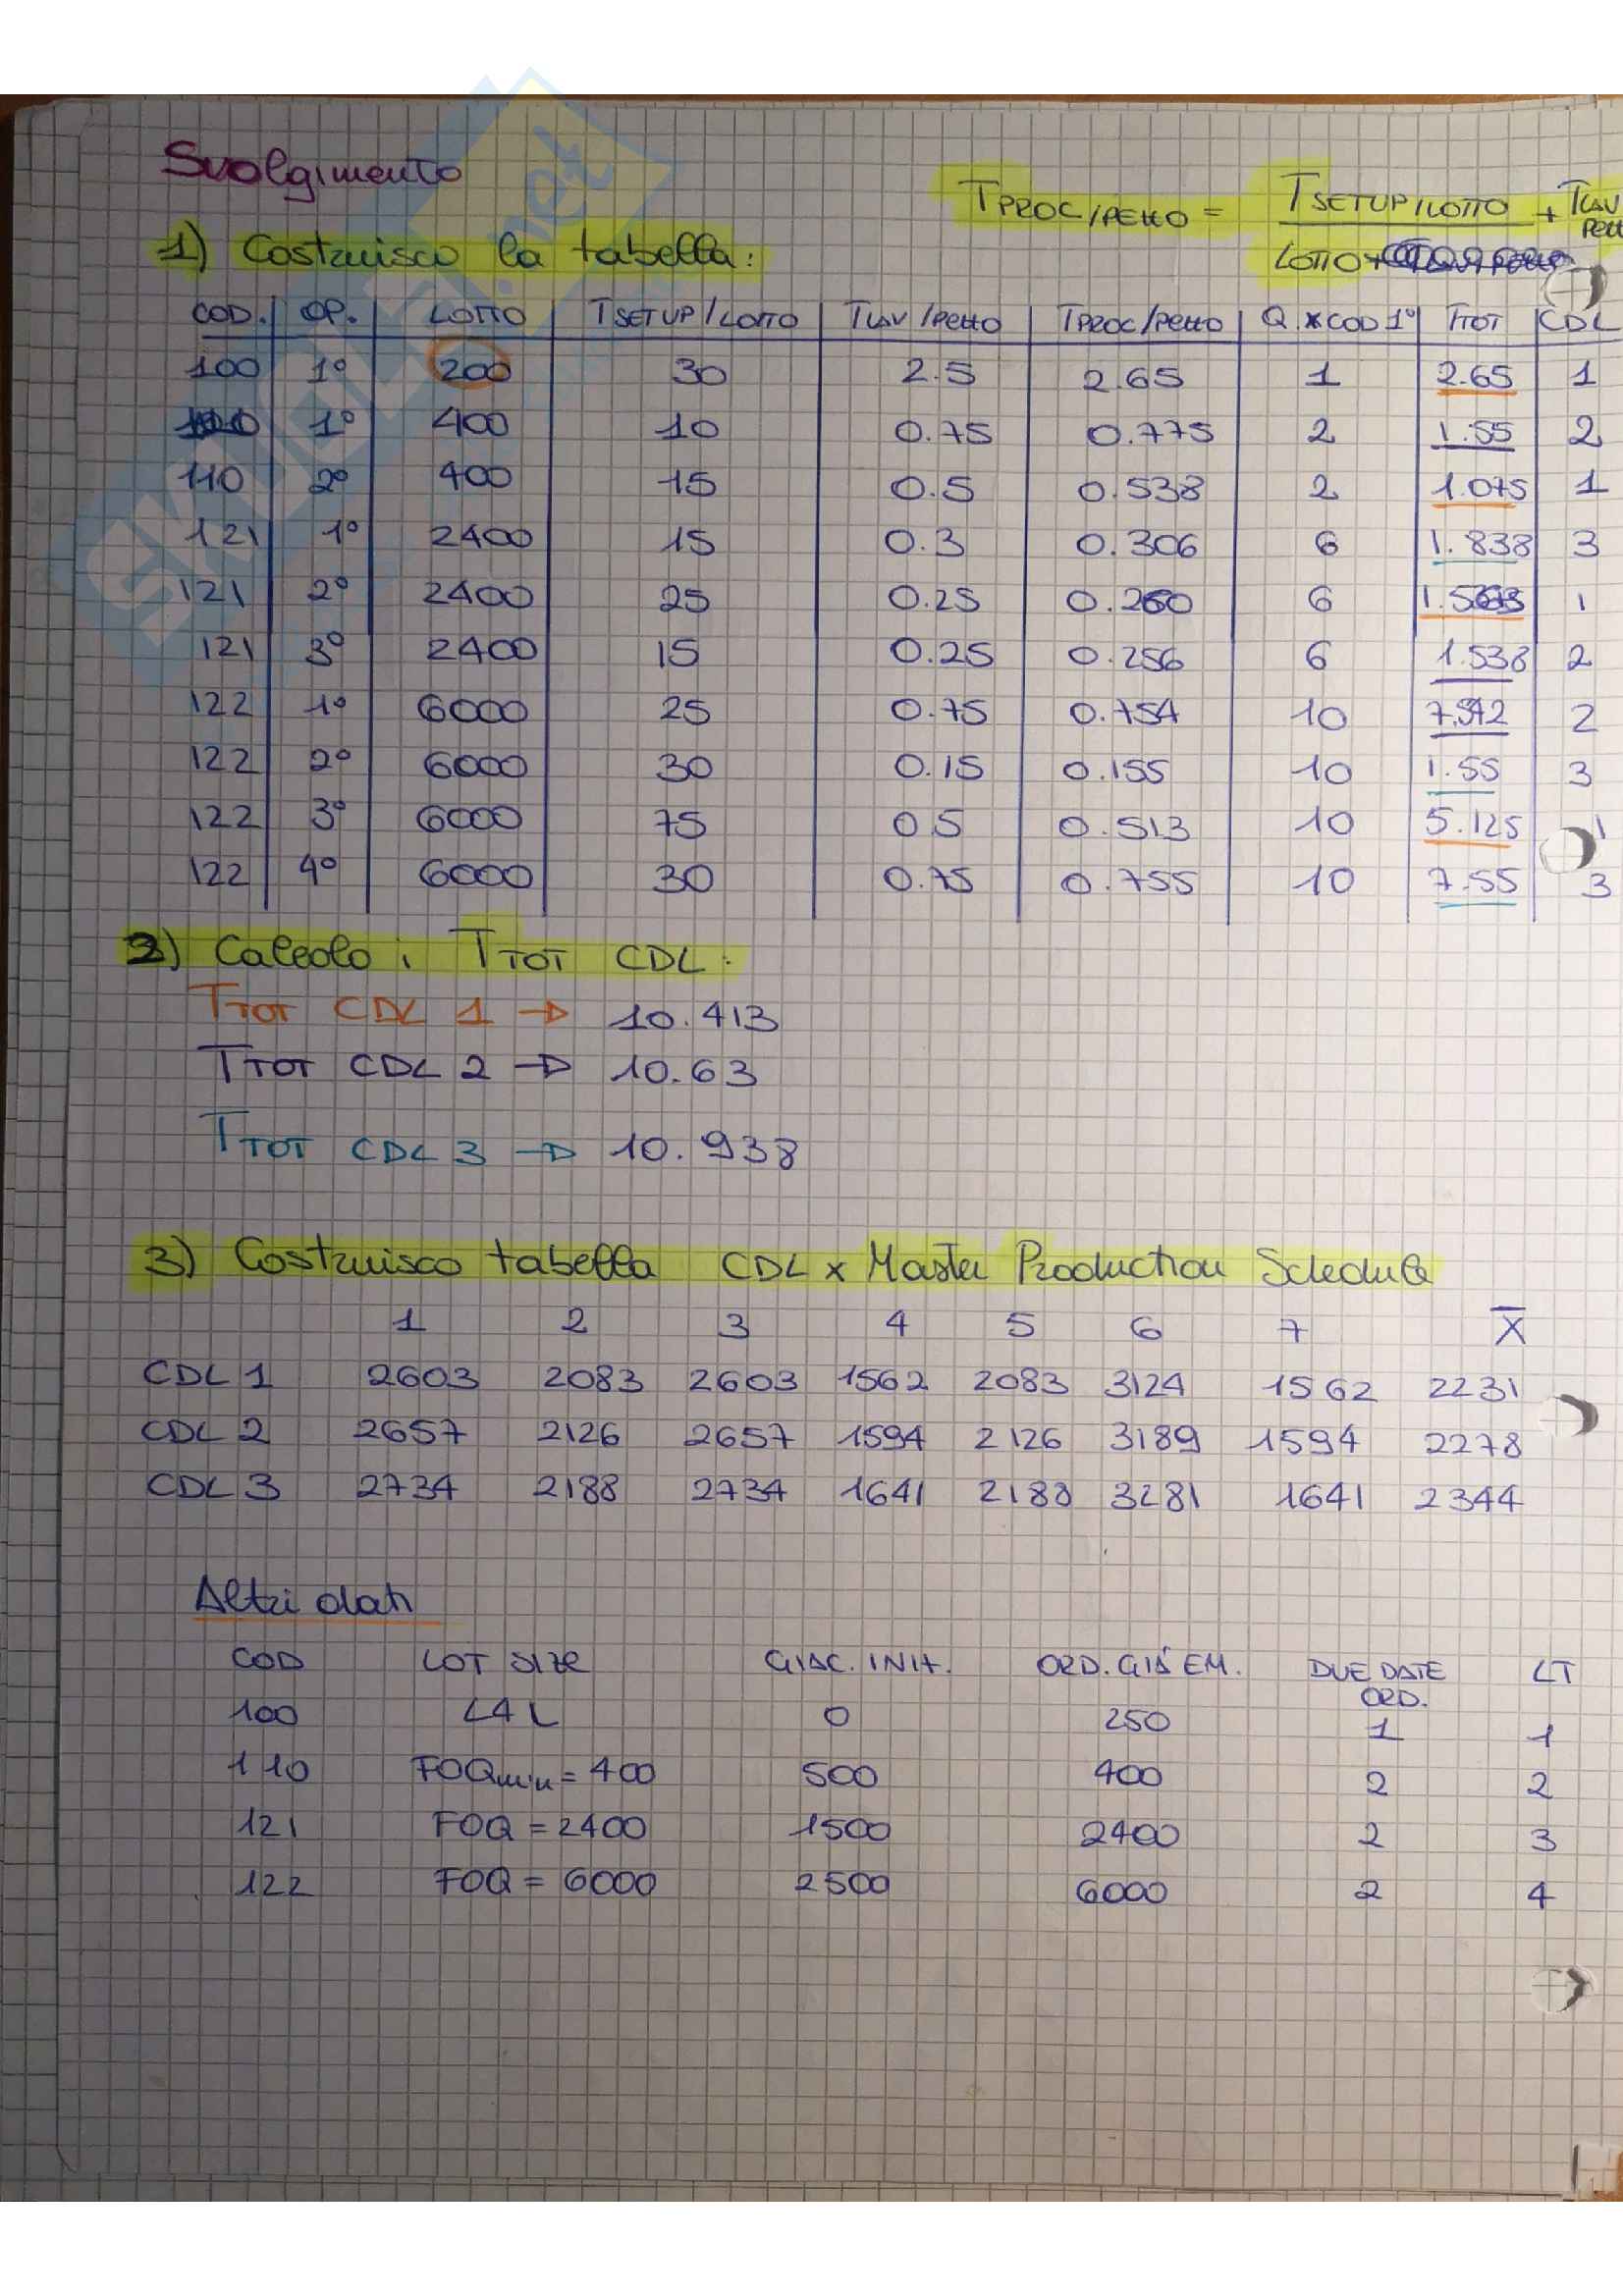 Svolgimento
TPROC/PEZZO = TSETUP/LOTTO / LOTTO + TLAV
1) Costruisco la tabella:
COD. OP. LOTTO TSETUP/LOTTO TLAV/PEZZO TPROC/PEZZO Q x COD 1° TTOT CDL
100 1° 200 30 2.5 2.65 1 2.65 1
1° 400 10 0.75 0.775 2 1.55 2
110 2° 400 15 0.5 0.538 2 1.075 1
121 1° 2400 15 0.3 0.306 6 1.838 3
121 2° 2400 25 0.25 0.260 6 1
121 3° 2400 15 0.25 0.256 6 1.538 2
122 1° 6000 25 0.75 0.754 10 7.542 2
122 2° 6000 30 0.15 0.155 10 1.55 3
122 3° 6000 75 0.5 0.513 10 5.125 1
122 4° 6000 30 0.75 0.755 10 7.55 3
2) Calcolo i TTOT CDL:
TTOT CDL 1 → 10.413
TTOT CDL 2 → 10.63
TTOT CDL 3 → 10.938
3) Costruisco tabella CDL x Master Production Schedule
1 2 3 4 5 6 7 X̄
CDL 1 2603 2083 2603 1562 2083 3124 1562 2231
CDL 2 2657 2126 2657 1594 2126 3189 1594 2278
CDL 3 2734 2188 2734 1641 2188 3281 1641 2344
Altri dati
COD LOT SIZE GIAC. INIZ. ORD. GIÀ EM. DUE DATE ORD. LT
100 L4L 0 250 1 1
110 FOQmin = 400 500 400 2 2
121 FOQ = 2400 1500 2400 2 3
122 FOQ = 6000 2500 6000 2 4